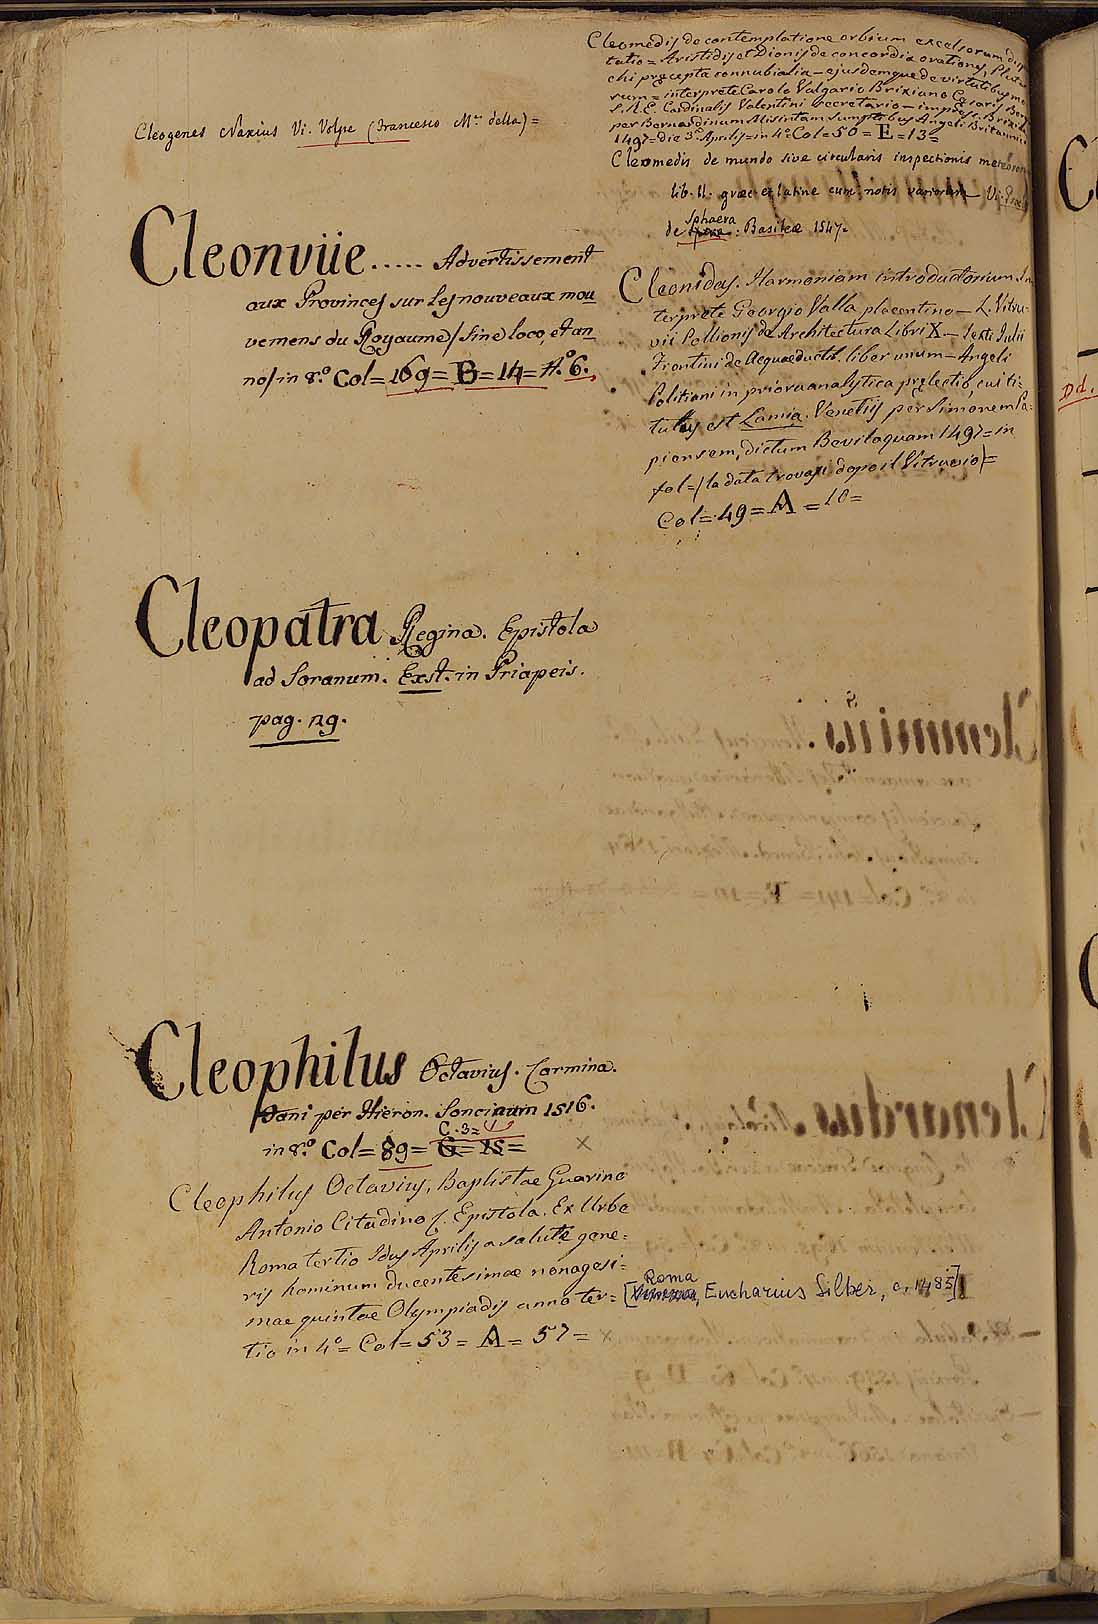 Cleogenes Naxius Vi. Volpe (Francesco M.ª della) =
Cleonviie ..... Advertissement
aux Provinces sur les nouveaux mou
vemens du Royaume / sine loco, et an
no / in 8.º Col = 169 = B = 14 = A.º 6.
Cleopatra Regina. Epistola
ad Soranum. Exst. in Priapeis.
pag. 
Cleophilus Octavius. Carmina.
Fani per Hieron. Soncinum 1516.
C. 3 =
in 8.º Col = 89 = G = 15 = ×
Cleophilus Octavius, Baptistae Guarino
Antonio Citadino S. Epistola. Ex Urbe
Roma tertio Idus Aprilis a salute gene=
ris hominum ducentesimae nonagesi=
mae quintae Olympiadis anno ter=
tio in 4.º = Col = 53 = A = 57 = ×
[Roma, Eucharius Silber, c. 1485]
Cleomedis de contemplatione orbium excelsorum
tatio = Aristidis et Dionis de concordia orationes, Plutar
chi praecepta connubialia — ejusdemque de virtutibus mo
rum = interprete Carolo Valgario Brixiano Caesaris
S. R. E. Cardinalis Valentini secretario — impress. Brixiae
per Bernardinum Misintam sumptibus Angeli Britannici
1497 = die 3.ª Aprilis = in 4.º Col = 50 = E = 13 =
Cleomedis de mundo sive circularis inspectionis meteoron
lib. II. graec. et latine cum notis variorum Vi.
Sphaera
de : Basileae 1547.
Cleonidas. Harmoniam introductorium In
terprete Georgio Valla placentino — L. Vitru=
vii Pollionis de Architectura Libri X — Sexti Julii
Frontini de Aquaeducti. liber unum — Angeli
Politiani in priora analytica praelectio, cui ti=
tulus est Lamia. Venetiis per Simonem Pa=
piensem, dictum Bevilaquam 1497 = in
fol = / la data trovasi dopo il Vitruvio / =
Col = 49 = A = 10 =
Dd.